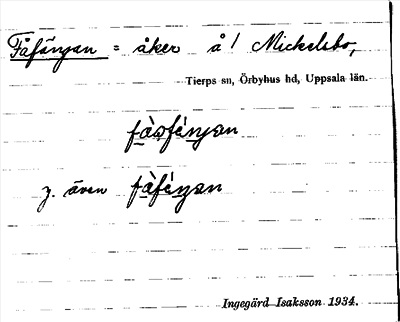 Fåfängan = åker å / Mickelsbo,
Tierps sn, Örbyhus hd, Uppsala län.
fåféŋan
y. även fåféŋan
Ingegärd Isaksson 1934.